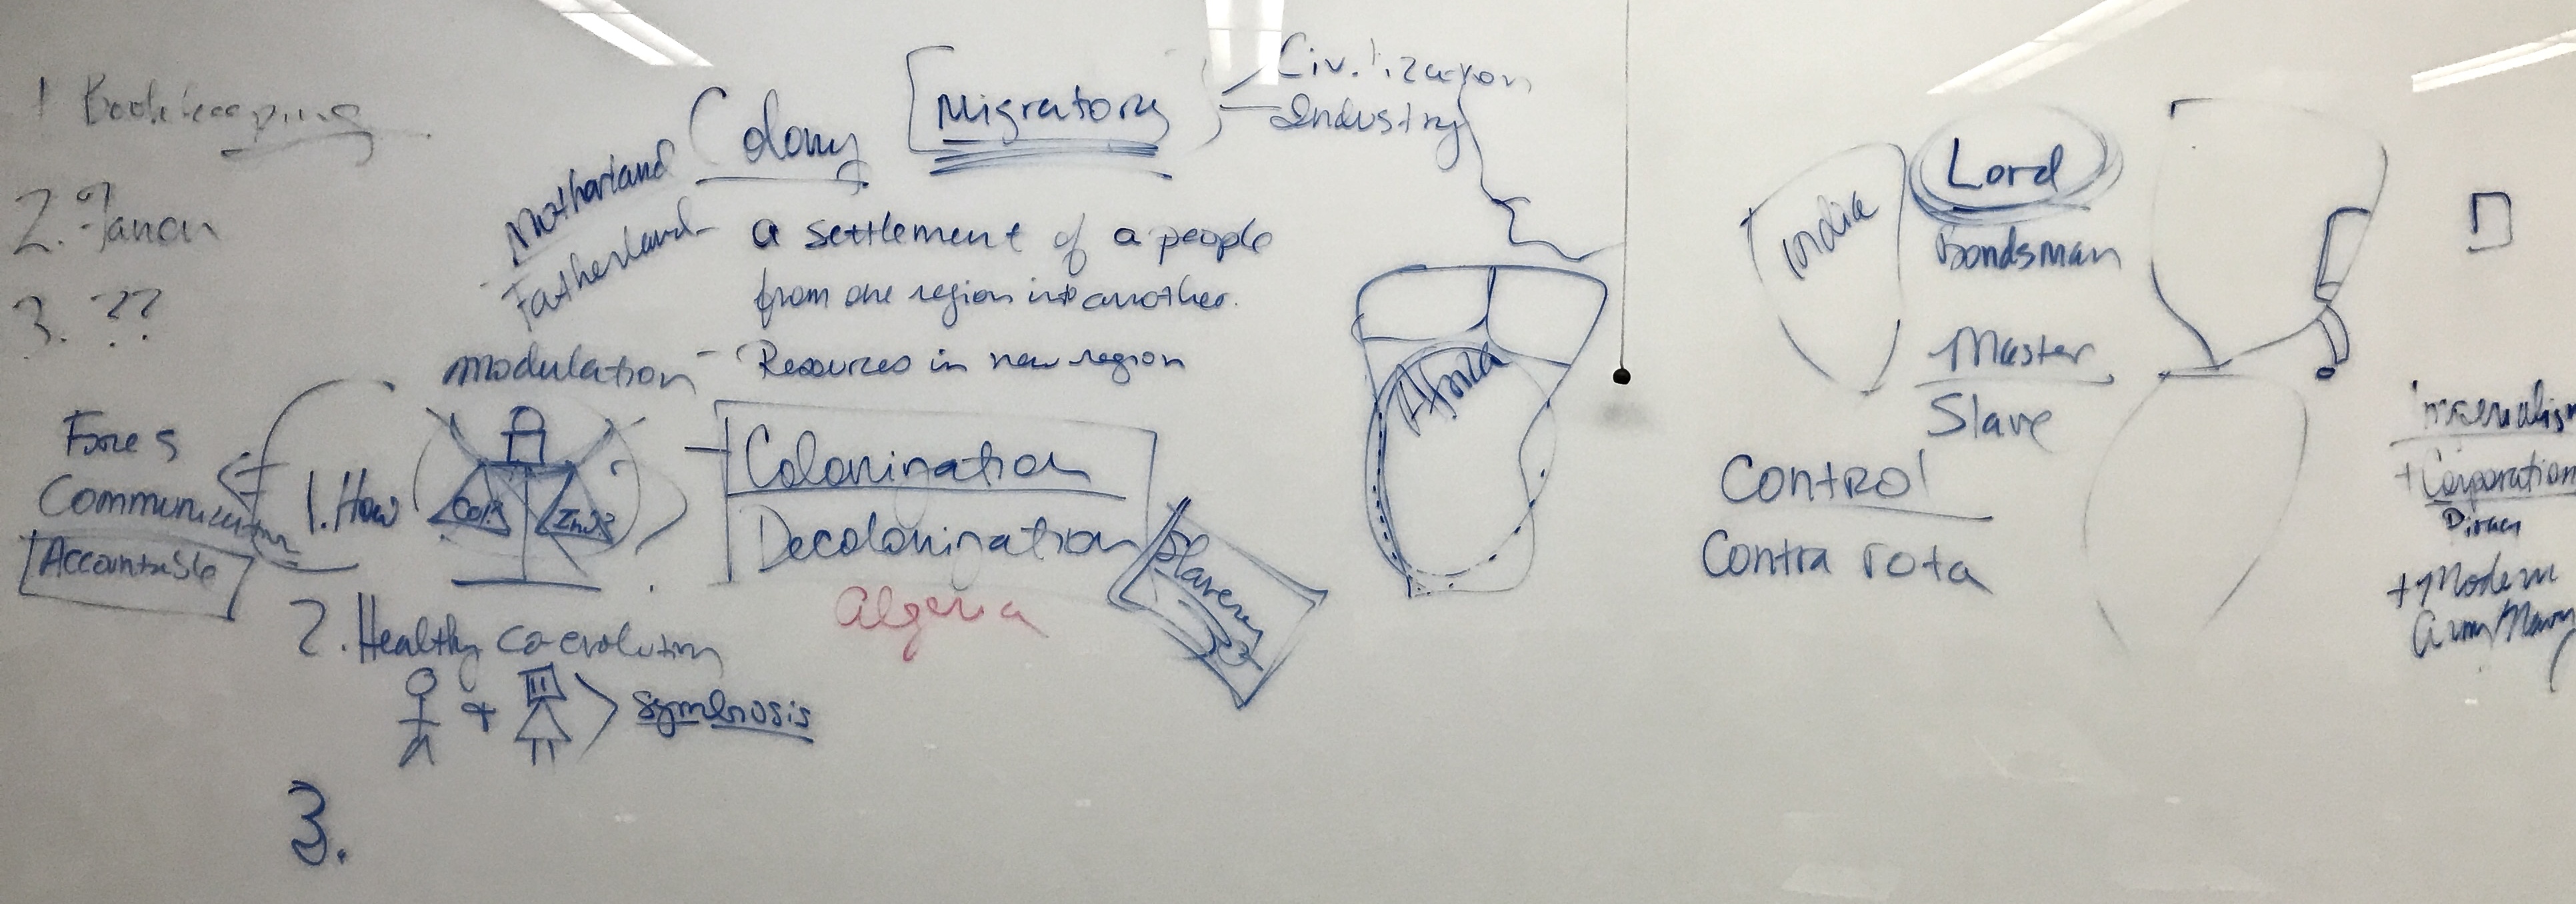 1 Bookkeeping
2. Fanon
3. ??
Colony [Migratory]
Civilization
Industry
Motherland
Fatherland
a settlement of a people
from one region into another.
modulation - Resources in new region
Forces
Communication
Accountable
1. How
Col.
Ind.
Colonization
Decolonization
Algeria
Slavery
2. Healthy co-evolution
+ > symbiosis
3.
Africa
India
Lord
Bondsman
Master
Slave
Control
Contra rota
Imperialism
+ Corporation
+ Modern
Army/Navy